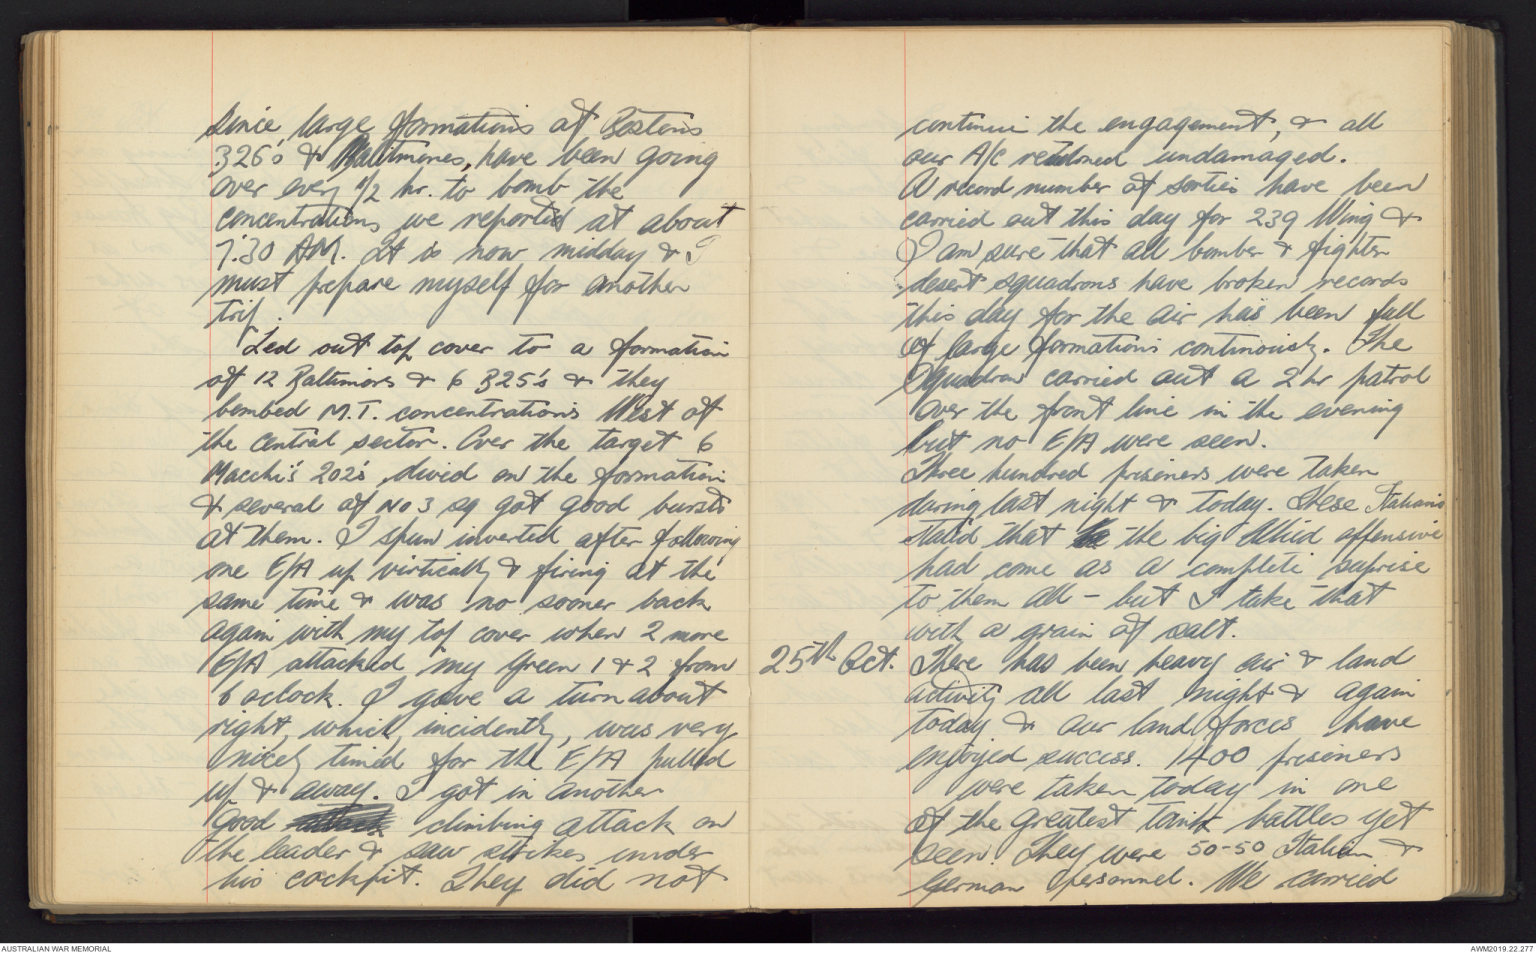 since large formations of Bostons
326's & Baltimores, have been going
over every 1/2 hr. to bomb the
concentrations we reported at about
7.30 AM. It is now midday & I
must prepare myself for another
trip.
Led out top cover to a formation
of 12 Baltimores & 6 325's & they
bombed M.T. concentrations West of
the central sector. Over the target 6
Macchi's 202's dived on the formation
& several of No 3 sq got good bursts
at them. I spun inverted after following
one E/A up virtically & firing at the
same time & was no sooner back
again with my top cover when 2 more
E/A attacked my Green 1 & 2 from
6 oclock. I gave a turn about
right, which, incidently, was very
nicely timed for the E/A pulled
up & away. I got in another
good attack climbing attack on
the leader & saw strikes under
his cockpit. They did not
continue the engagement, & all
our A/C returned undamaged.
A record number of sorties have been
carried out this day for 239 Wing &
I am sure that all bomber & fighter
desert squadrons have broken records
this day for the air has been full
of large formations continously. The
Squadron carried out a 2 hr patrol
over the front line in the evening
but no E/A were seen.
Three hundred prisoners were taken
during last night & today. These Italians
stated that the big Allied offensive
had come as a complete suprise
to them all - but I take that
with a grain of salt.
25th Oct. There has been heavy air & land
activity all last night & again
today & our land forces have
enjoyed success. 1400 prisoners
were taken today in one
of the greatest tank battles yet
seen. They were 50-50 Italian &
German personnel. We carried
AUSTRALIAN WAR MEMORIAL
AWM2019.22.277